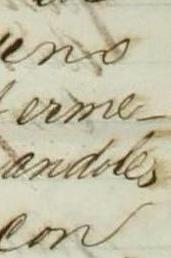 ens
erme-
andoles
con